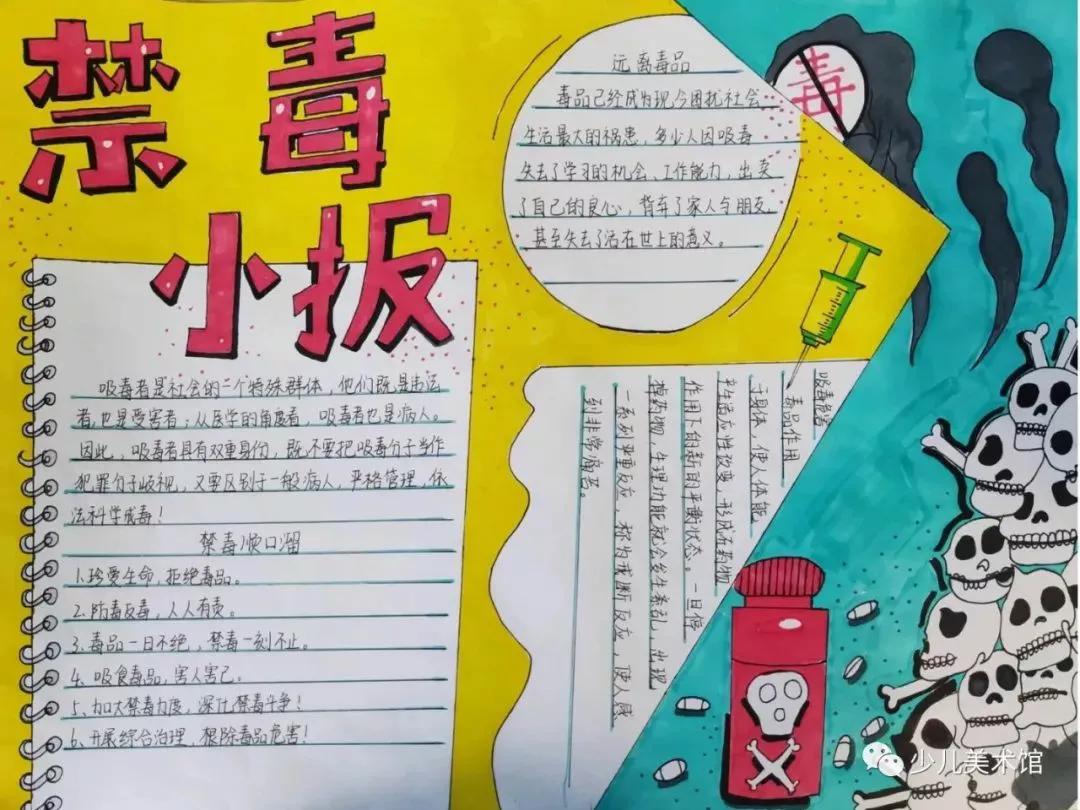 禁毒
小报
远离毒品
毒品已经成为现今困扰社会
生活最大的祸患，多少人因吸毒
失去了学习的机会、工作能力，出卖
了自己的良心，背弃了家人与朋友，
甚至失去了活在世上的意义。
毒
吸毒者是社会的一个特殊群体，他们既是违法
者，也是受害者；从医学的角度看，吸毒者也是病人。
因此，吸毒者具有双重身份，既不要把吸毒分子当作
犯罪分子歧视，又要区别于一般病人，严格管理，依
法科学戒毒！
禁毒顺口溜
1.珍爱生命，拒绝毒品。
2.防毒反毒，人人有责。
3.毒品一日不绝，禁毒一刻不止。
4.吸食毒品，害人害己。
5、加大禁毒力度，深化禁毒斗争！
6、开展综合治理，根除毒品危害！
吸毒危害
毒品作用
于身体，使人体能
产生适应性改变，形成在药物
作用下的新的平衡状态。一旦停
掉药物，生理功能就会发生紊乱，出现
一系列严重反应，称为戒断反应，使人感
到非常痛苦。
少儿美术馆